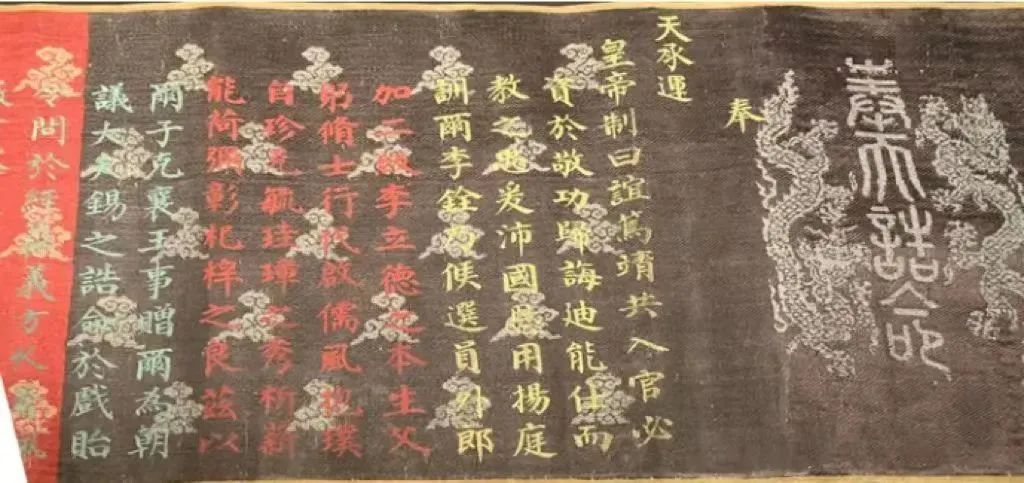 奉天誥命
奉
天承運
皇帝制曰誼篤靖共入官必
資於敬功歸誨迪能仕而
教之忠爰沛國恩用揚庭
訓爾李銓乃候選員外郎
加二級李立德之本生父
躬脩士行代啟儒風抱璞
自珍克毓珪璋之秀析薪
能荷彌彰杞梓之良茲以
爾子克襄王事贈爾為朝
議大夫錫之誥命於戲貽
令問於經義方